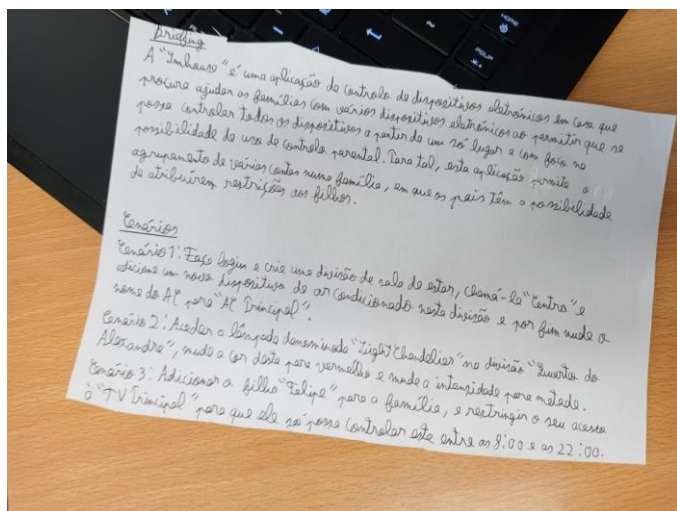 Briefing
A "Imhouse" é uma aplicação de controlo de dispositivos eletrónicos em casa que
procura ajudar as famílias com vários dispositivos eletrónicos ao permitir que se
possa controlar todos os dispositivos a partir de um só lugar e com foco na
possibilidade de uso de controlo parental. Para tal, esta aplicação permite o
agrupamento de várias contas numa família, em que os pais têm a possibilidade
de atribuírem restrições aos filhos.
Cenários
Cenário 1: Faça login e crie uma divisão de sala de estar, chamá-la "Centro" e
adicione um novo dispositivo de ar condicionado nesta divisão e por fim mude o
nome do AC para "AC Principal".
Cenário 2: Aceder a lâmpada denominada "Light Chandelier" na divisão "Quarto do
Alexandre", mude a cor deste para vermelho e mude a intensidade para metade.
Cenário 3: Adicionar o filho "Felipe" para a família, e restringir o seu acesso
à "TV Principal" para que ele só possa controlar este entre as 8:00 e as 22:00.
HOME
PGUP